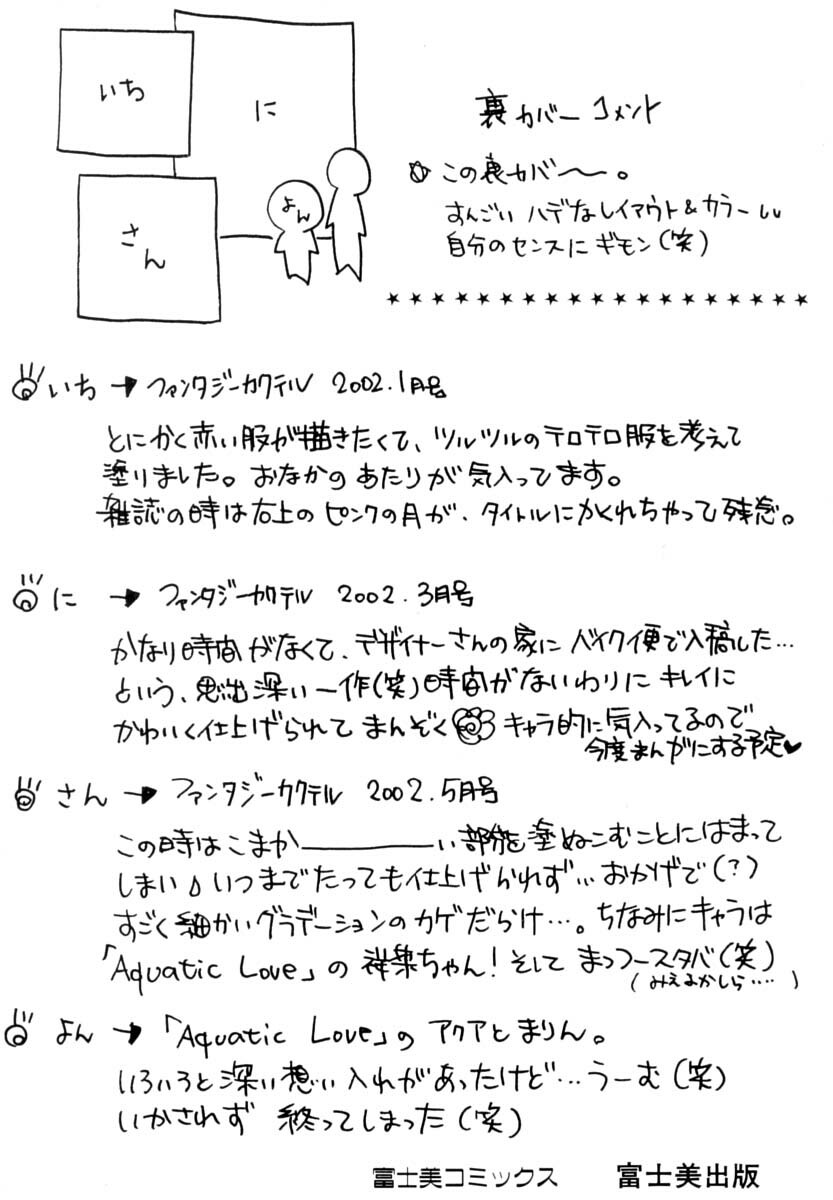 いち
に
さん
よん
裏カバーコメント
この裏カバ〜。
すんごいハデなレイアウト&カラーしい
自分のセンスにギモン(笑)
★★★★★★★★★★★★★★★★★★★
いち→ファンタジーカクテル 2002.1月号
とにかく赤い服が描きたくて、ツルツルのテロテロ服を考えて
塗りました。おなかのあたりが気入ってます。
雑誌の時は右上のピンクの月が、タイトルにかくれちゃって残念。
に→ファンタジーカクテル 2002.3月号
かなり時間がなくて、デザイナーさんの家にバイク便で入稿した…
という、思出深い一作(笑)時間がないわりにキレイに
かわいく仕上げられてまんぞく キャラ的に気入ってるので
今度まんがにする予定♥
さん→ファンタジーカクテル 2002.5月号
この時はこまか――――い部分を塗ぬこむことにはまって
しまい♪いつまでたっても仕上げられず…おかげで(?)
すごく細かいグラデーションのカゲだらけ…。ちなみにキャラは
「Aquatic Love」の ちゃん!そして スタバ(笑)
(みえるかしら…‥)
よん→「Aquatic Love」のアクアとまりん。
いろいろと深い想い入れがあったけど…うーむ(笑)
いかされず 終ってしまった(笑)
富士美コミックス 富士美出版